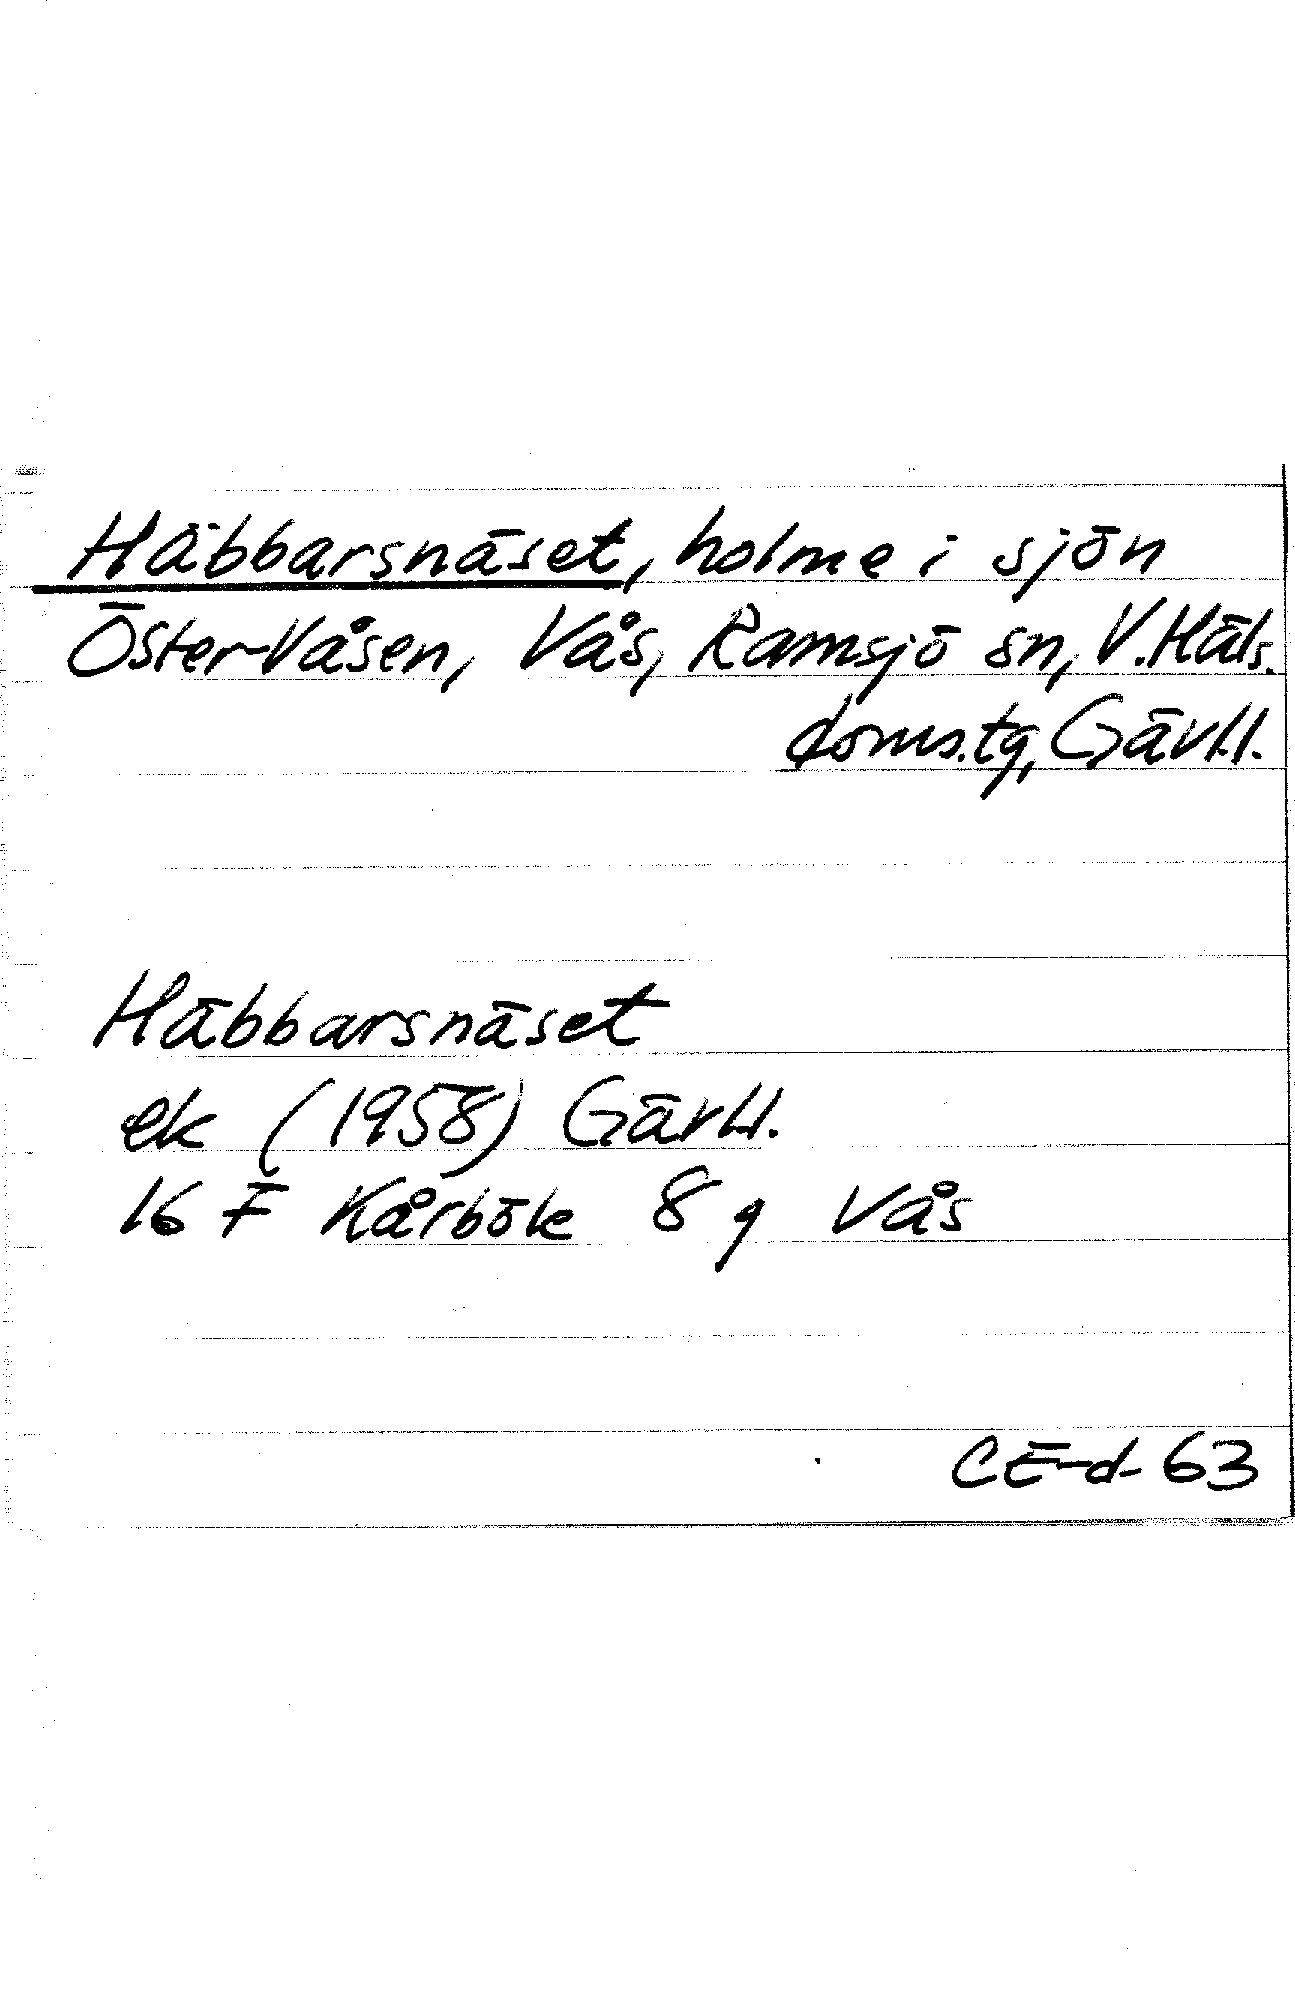 Häbbarsnäset, holme i sjön
Öster-Våsen, Vås, Ramsjö sn, V. Häls.
doms.tg, Gävl.l.
Häbbarsnäset
ek (1958) Gävl.l.
16 F Kårböle 8 g Vås
CE-d-63